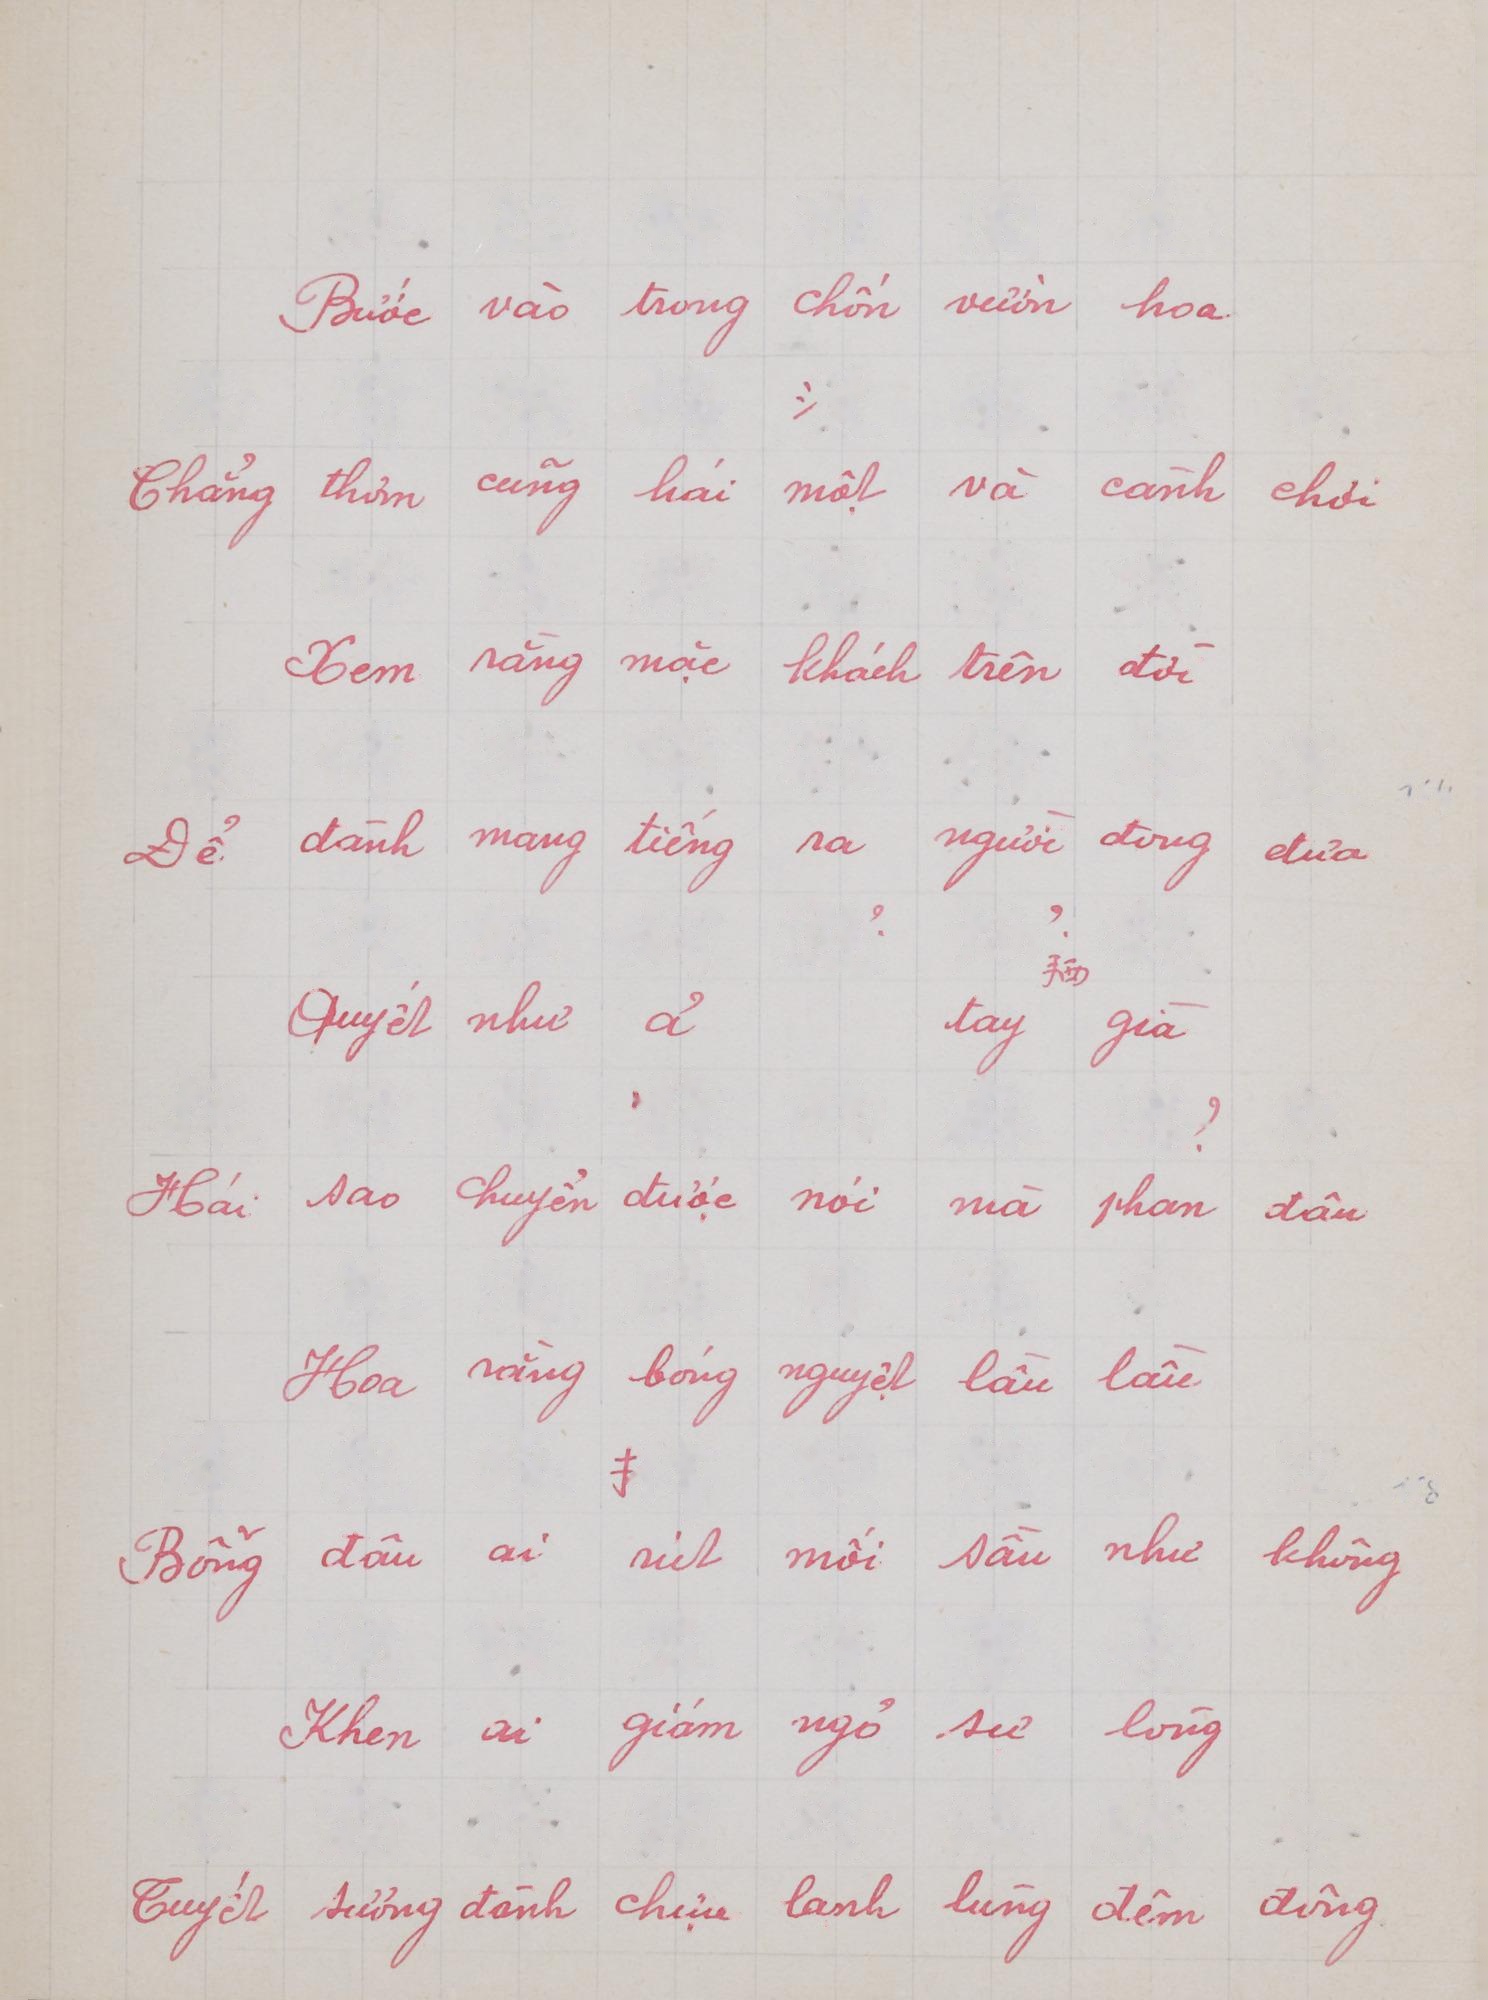 Bước vào trong chốn vườn hoa
Chẳng thơm cũng hái một và cành chơi
Xem rằng mặc khách trên đời
Để đành mang tiếng ra người đong đưa
? ?
Quyết như ả tay già
?
Hái sao chuyển được nói mà phan đâu
Hoa rằng bóng nguyệt lầu lầu
Bỗng đâu ai rút mối sầu như không
Khen ai giám ngỏ sư lòng
Tuyết sương đành chịu lanh lùng đêm đông